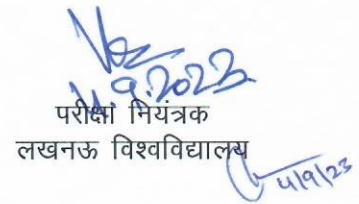 4.9.2023
परीक्षा नियंत्रक
लखनऊ विश्वविद्यालय
4/9/23